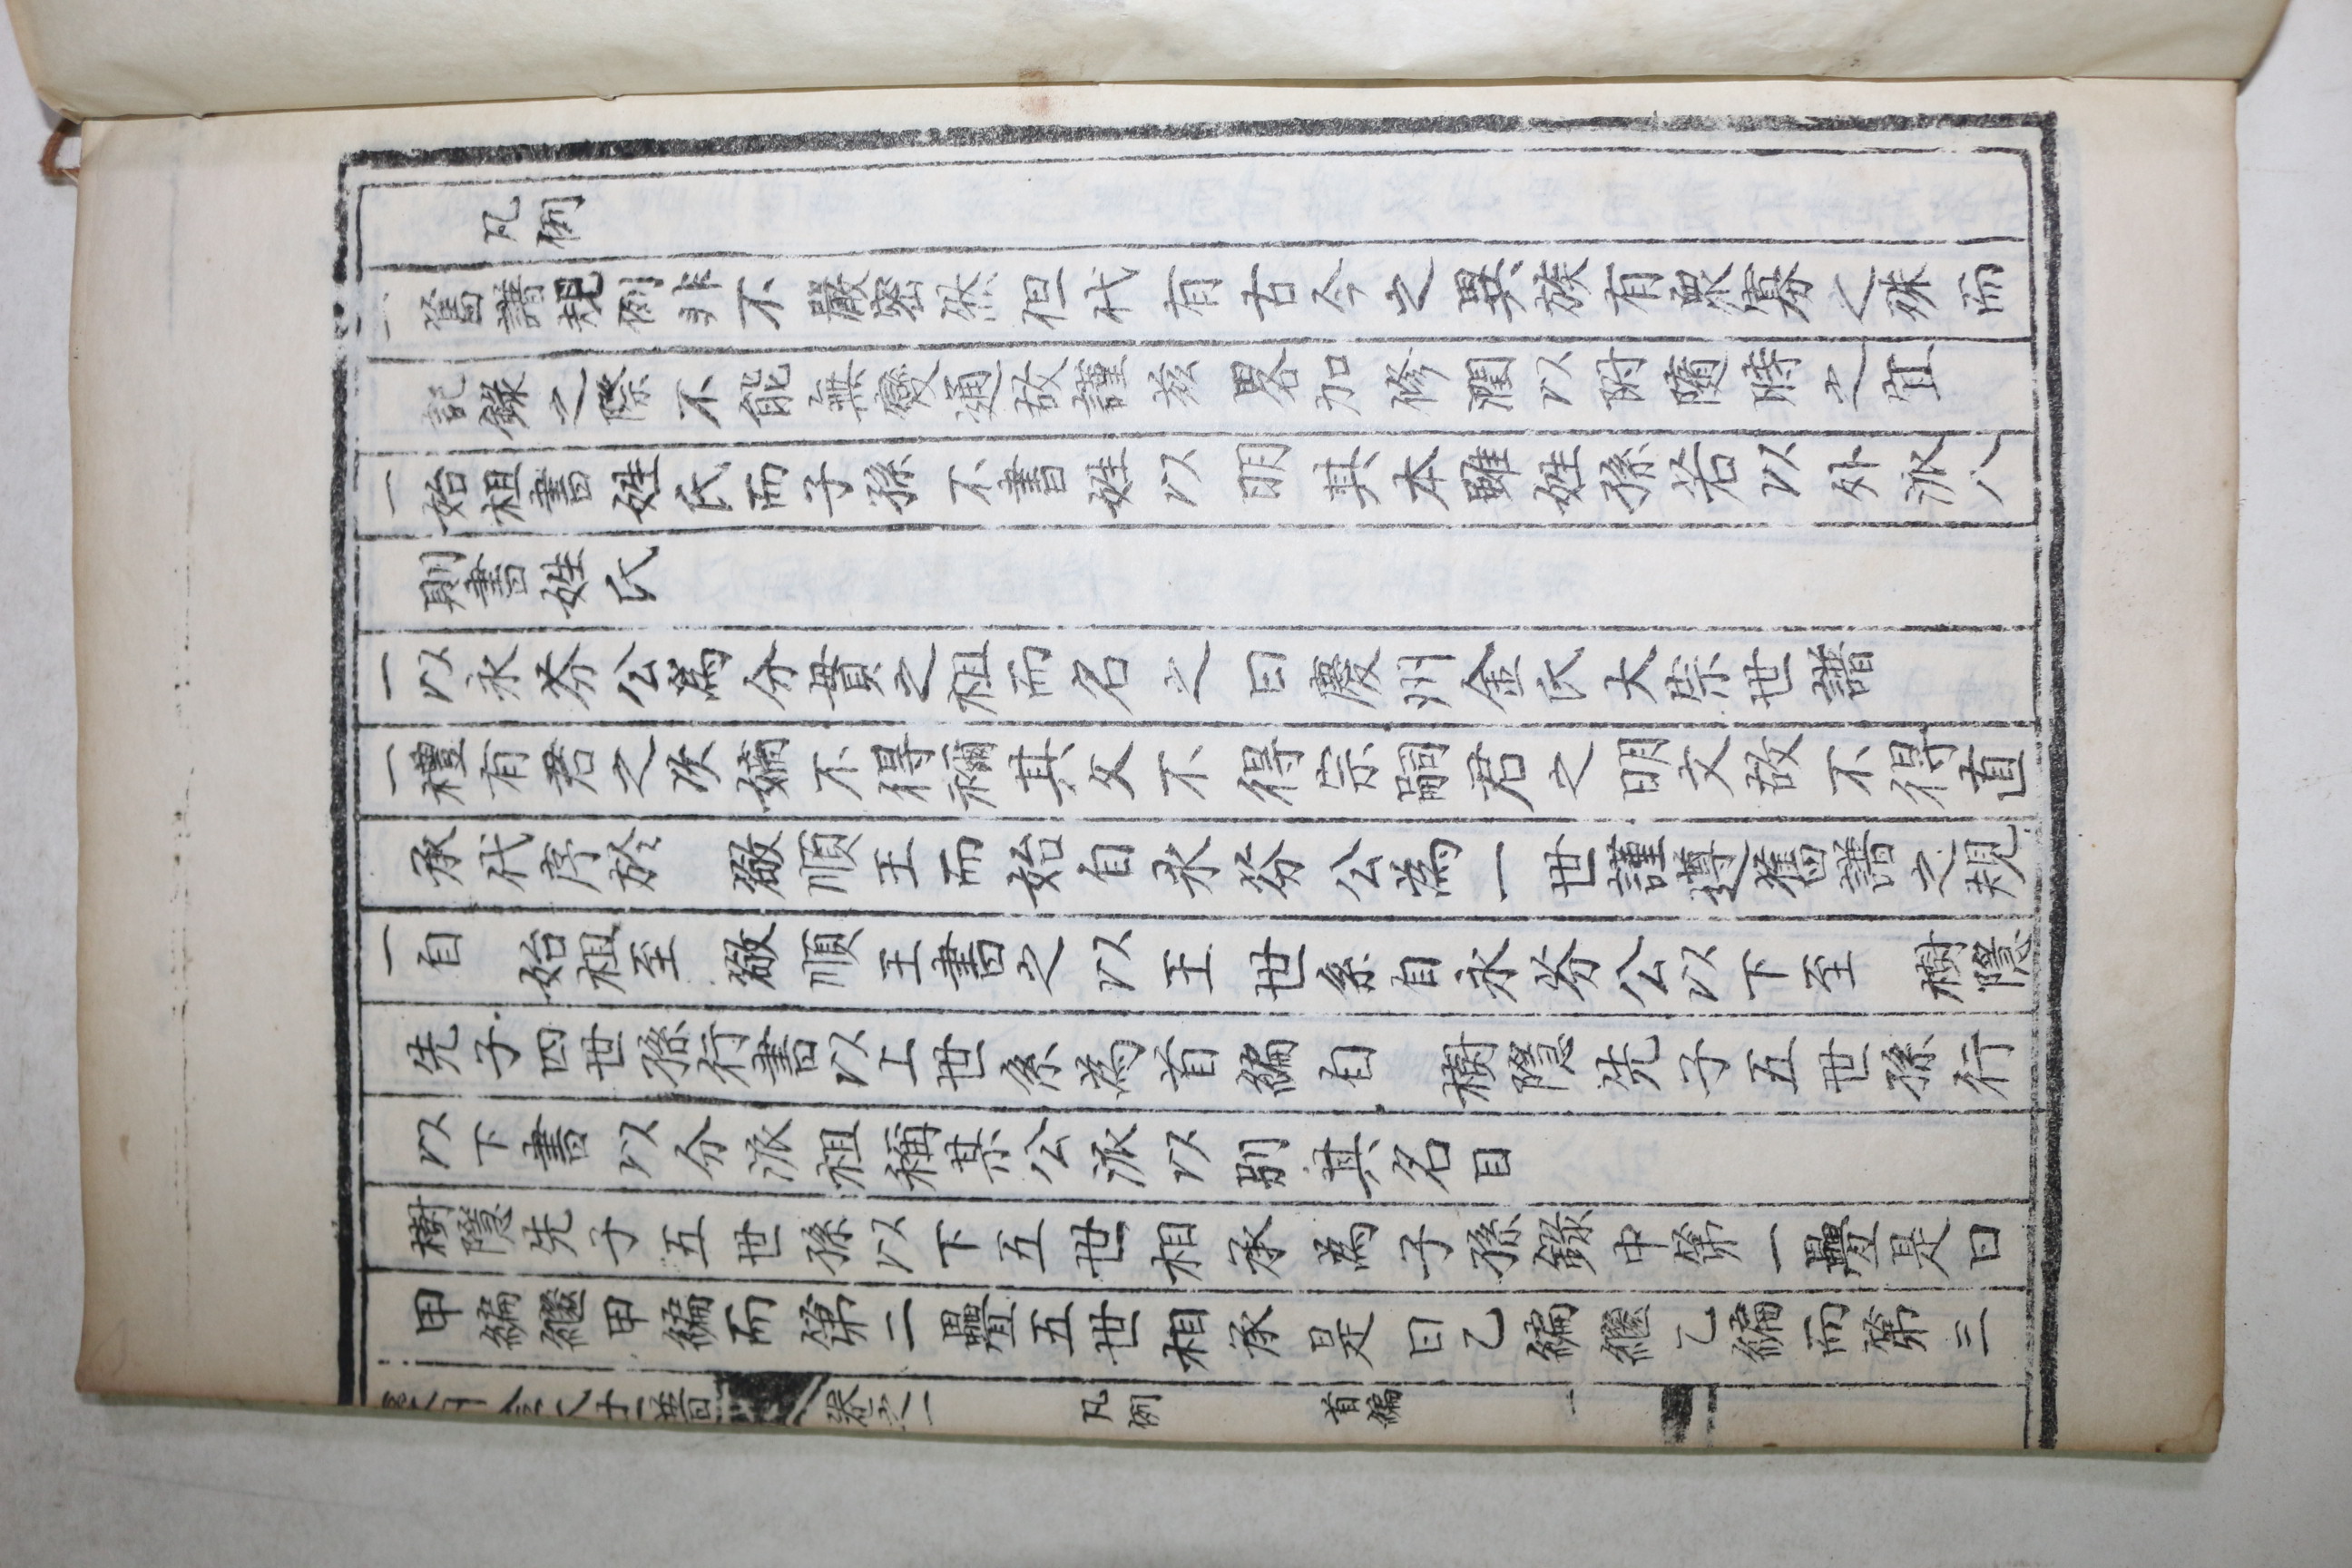 凡例
一舊譜規例非不嚴密然但代有古今之異族有衆寡之殊而
記錄之際不能無變通故謹玆畧加修潤以附隨時之宜
一始祖書姓氏而子孫不書姓以明其本雖姓孫若以外派入
則書姓氏
一以永芬公爲分貫之祖而名之曰慶州金氏大宗世譜
一禮有君之次嫡不得禰其父不得宗嗣君之明文故不得直
承代序於 敬順王而始自永芬公爲一世謹遵舊譜之規
一自 始祖至 敬順王書之以王世系自永芬公以下至 樹隱
先子四世孫行書以上世系爲首編自 樹隱先子五世孫行
以下書以分派祖稱某公派以別其名目
樹隱先子五世孫以下五世相承爲子孫錄中第一疊是曰
甲編繼甲編而第二疊五世相承是曰乙編繼乙編而第三
卷之一 凡例 首編 一